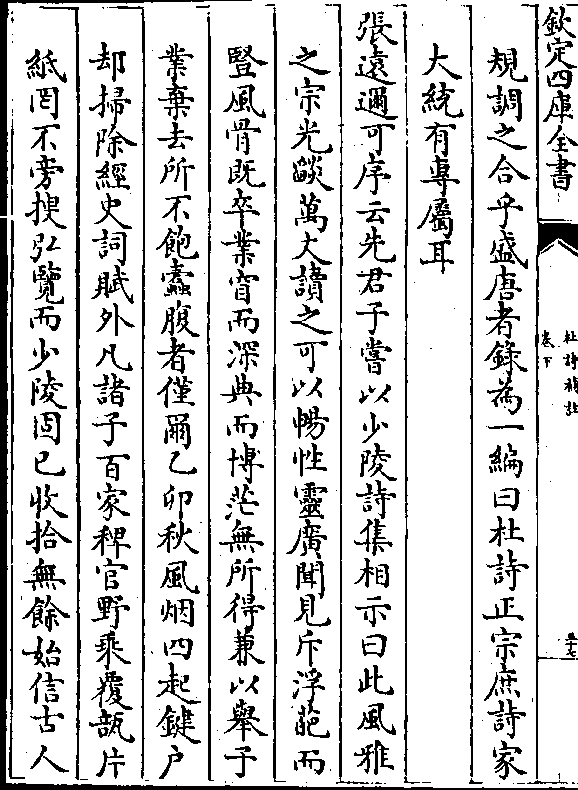 欽定四庫全書
杜詩補註
卷下
三十七
規調之合乎盛唐者錄為一編曰杜詩正宗庶詩家
大統有專屬耳
張遠邇可序云先君子嘗以少陵詩集相示曰此風雅
之宗光燄萬丈讀之可以暢性靈廣聞見斥浮葩而
豎風骨既卒業窅而深典而博茫無所得兼以舉子
業棄去所不飽蠹腹者僅爾乙卯秋風烟四起鍵户
却掃除經史詞賦外凡諸子百家稗官野乘覆瓿片
紙罔不旁搜弘覽而少陵固已收拾無餘始信古人